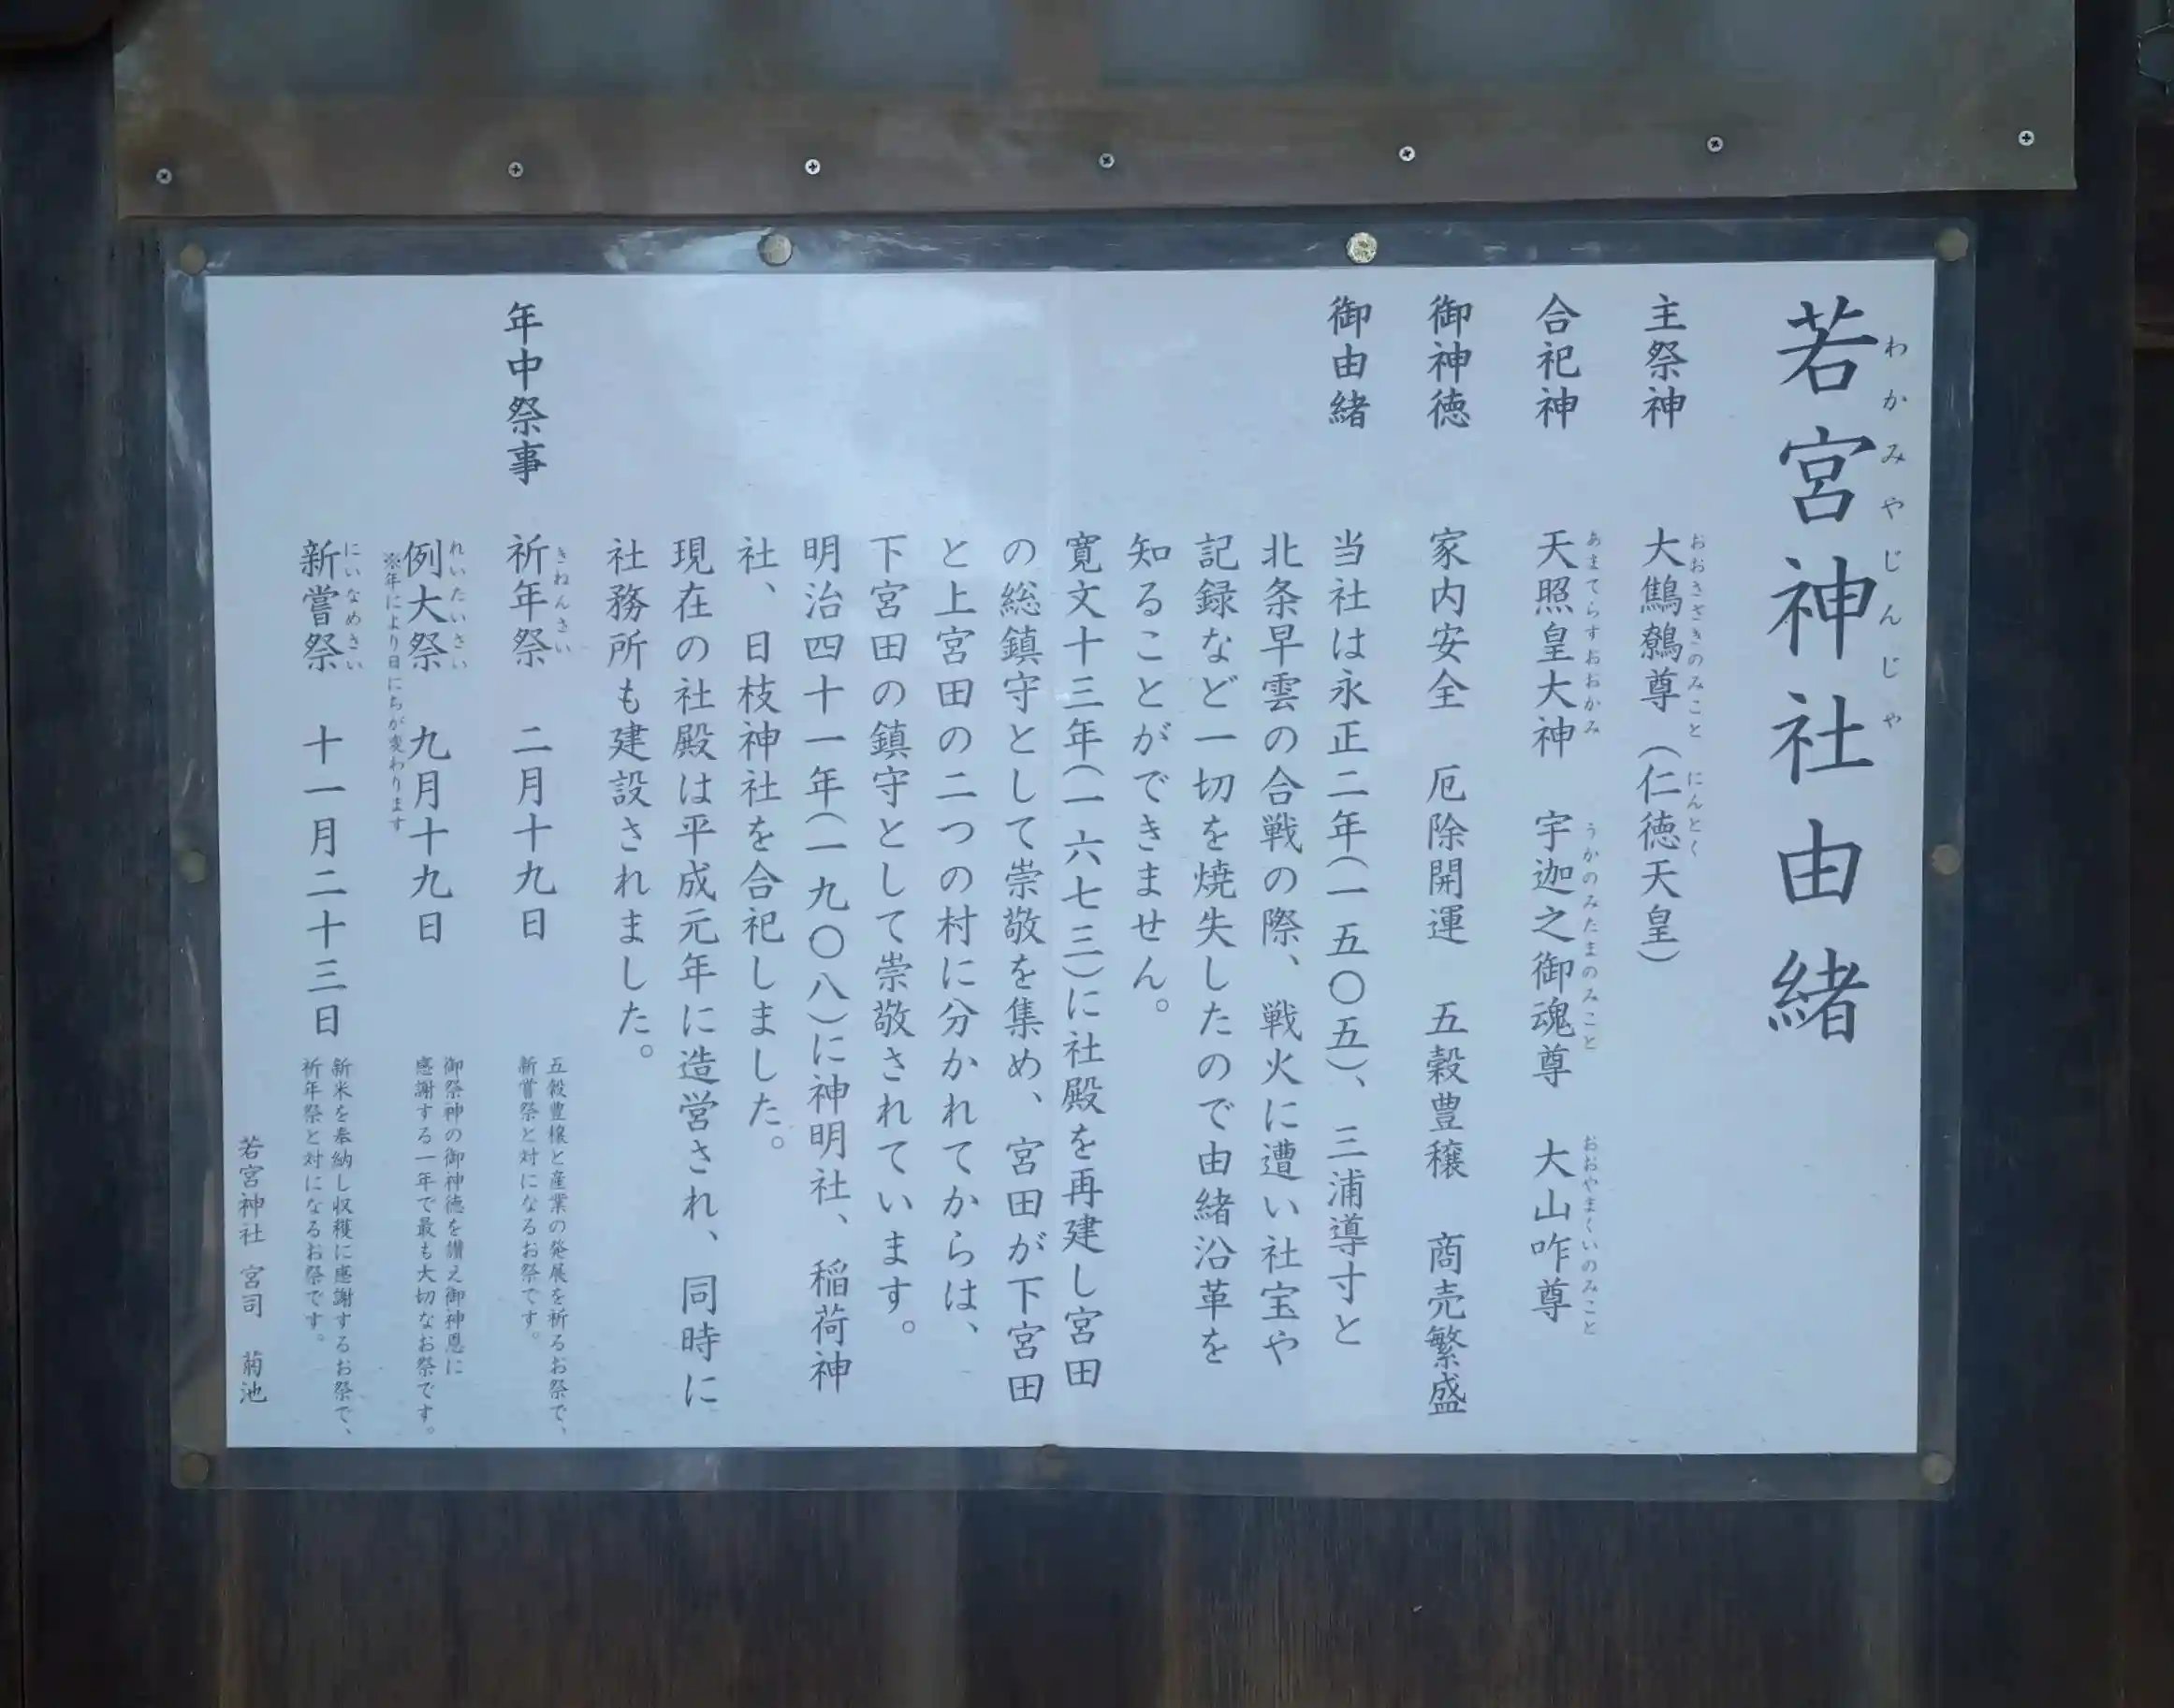 若宮神社由緒
わかみやじんじゃ
主祭神 大鷦鷯尊(仁徳天皇)
おおきさきのみこと にんとく
合祀神 天照皇大神 宇迦之御魂尊 大山咋尊
あまてらすおおかみ うかのみたまのみこと おおやまくいのみこと
御神徳 家内安全 厄除開運 五穀豊穣 商売繁盛
御由緒 当社は永正二年(一五〇五)、三浦導寸と
北条早雲の合戦の際、戦火に遭い社宝や
記録など一切を焼失したので由緒沿革を
知ることができません。
寛文十三年(一六七三)に社殿を再建し宮田
の総鎮守として崇敬を集め、宮田が下宮田
と上宮田の二つの村に分かれてからは、
下宮田の鎮守として崇敬されています。
明治四十一年(一九〇八)に神明社、稲荷神
社、日枝神社を合祀しました。
現在の社殿は平成元年に造営され、同時に
社務所も建設されました。
年中祭事 祈年祭 二月十九日
きねんさい
五穀豊穣と産業の発展を祈るお祭で、
新嘗祭と対になるお祭です。
例大祭 九月十九日
れいたいさい
※年により日にちが変わります
御祭神の御神徳を讃え御神恩に
感謝する一年で最も大切なお祭です。
新嘗祭 十一月二十三日
にいなめさい
新米を奉納し収穫に感謝するお祭で、
祈年祭と対になるお祭です。
若宮神社 宮司 菊池